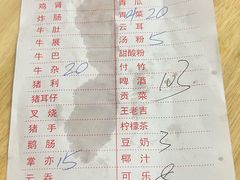 鸡肾
炸肠
牛肚
牛展
牛巴
牛杂 20
猪利
猪耳仔
叉烧
猪手
鹅肠
掌亦 15
云吞
青瓜
青菜 20
云耳
汤粉 5
甜酸粉
付竹
啤酒
贡菜
王老吉
柠檬茶
豆奶 3
椰汁
可乐